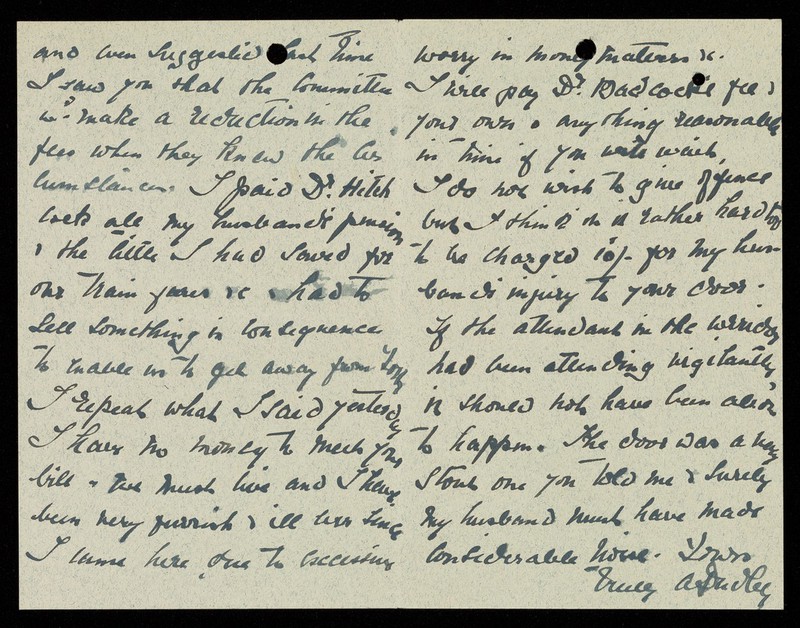 and even suggested last time
I saw you that the Committee
wd make a reduction in the
fees when they knew the cir
cumstances. I paid Dr. Hitch
cock all my husband's pension
& the little I had saved for
our train fares &c & had to
sell something in consequence
to enable us to get away from
I repeat what I said yesterday
I have no money to meet your
bill & we must live and I have
been very feverish & ill ever since
I came here due to excessive
worry in money matters &c.
I will pay Dr. Badcock's fee &
your own & anything reasonable
in time if you will wait,
I do not wish to give offence
but I think it is rather hard
to be charged 10/- for my hus-
band's injury to your door.
If the attendant in the corridor
had been attending vigilantly
it should not have been able
to happen. The door was a very
stout one you told me & surely
my husband must have made
considerable noise. Yours
truly A Dudley